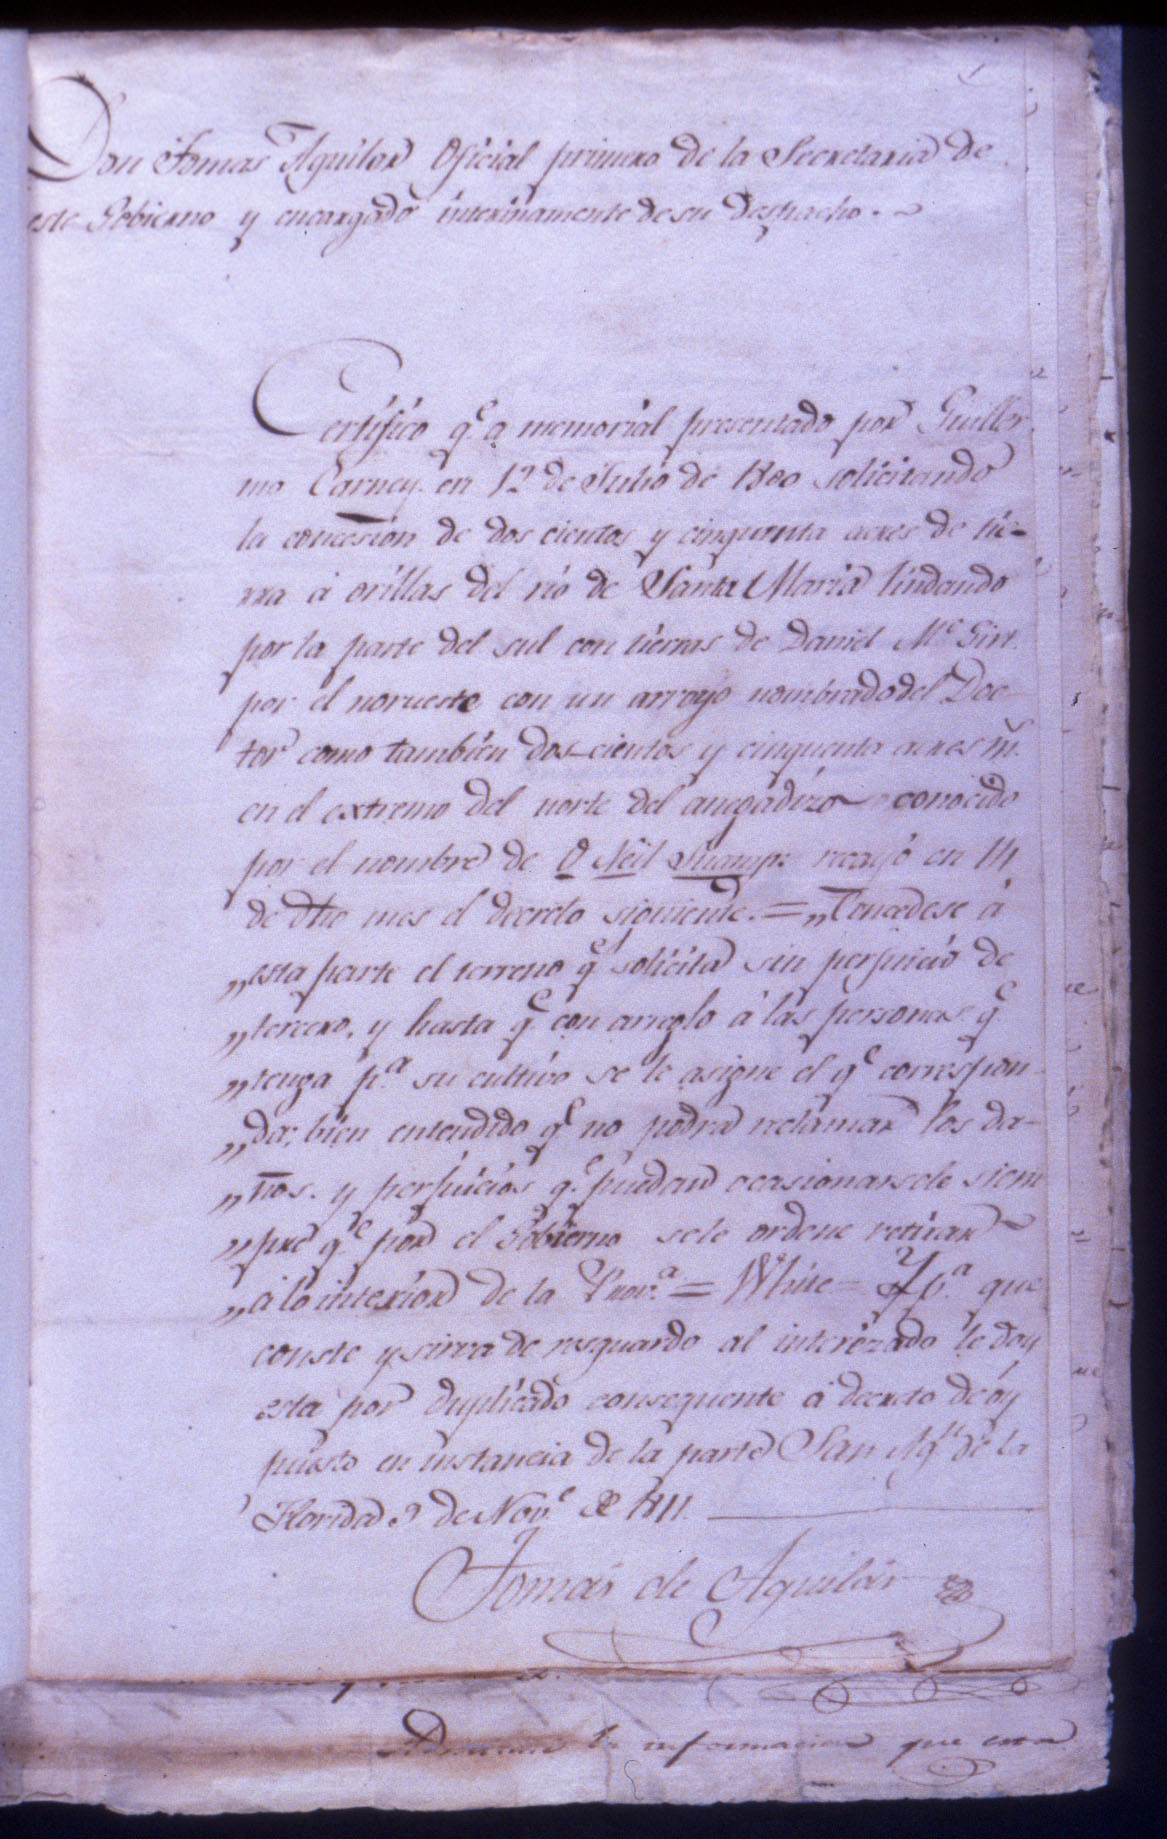 Don Tomas Aguilar Oficial primero de la Secretaria de
este Gobierno y encargado interinamente de su Despacho.
Certifico q.e a memorial presentado por Guiller-
mo Carney en 12 de Julio de 1800 solicitando
la concesion de dos cientos y cinquenta acres de tie-
rra à orillas del rio de Santa Maria lindando
por la parte del sul con tierras de Daniel Mc Girt.
por el norueste con un arroyo nombrado del Doc-
tor como tambien dos cientos y cinquenta acres
en el extremo del norte del anegadizo conocido
por el nombre de O Neil Swamp recayó en 14
de dho mes el decreto siguiente. = „Concedese à
„esta parte el terreno q.e solicita sin perjuicio de
„tercero, y hasta q.e con arreglo à las personas q.e
„tenga p.a su cultivo se le asigne el q.e correspon-
„da; bien entendido q.e no podra reclamar los da-
„ños. y perjuicios q.e puedan ocasionarsele siem
„pre q.e por el Gobierno sele ordene retirar
„à lo interior de la Prov.a = White = Y p.a que
conste y sirva de resguardo al interezado le doy
esta por duplicado consequente à decreto de oy
puesto en instancia de la parte San Ag.n de la
Florida 9 de Nov.e de 1811.
Tomas de Aguilar
la informacion que esta